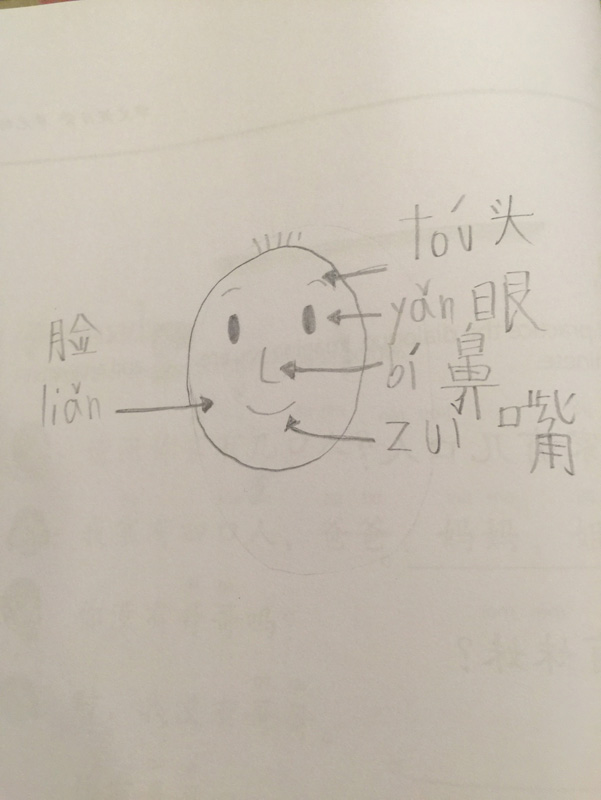 tóu 头
yǎn 眼
bí 鼻
zui 嘴
脸
liǎn